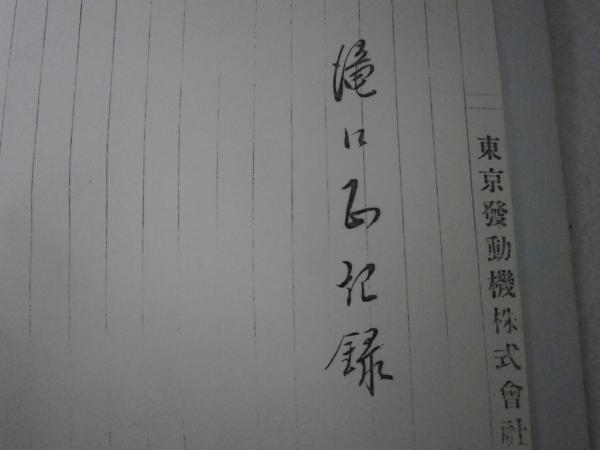 東京發動機株式會社
滝口正記録